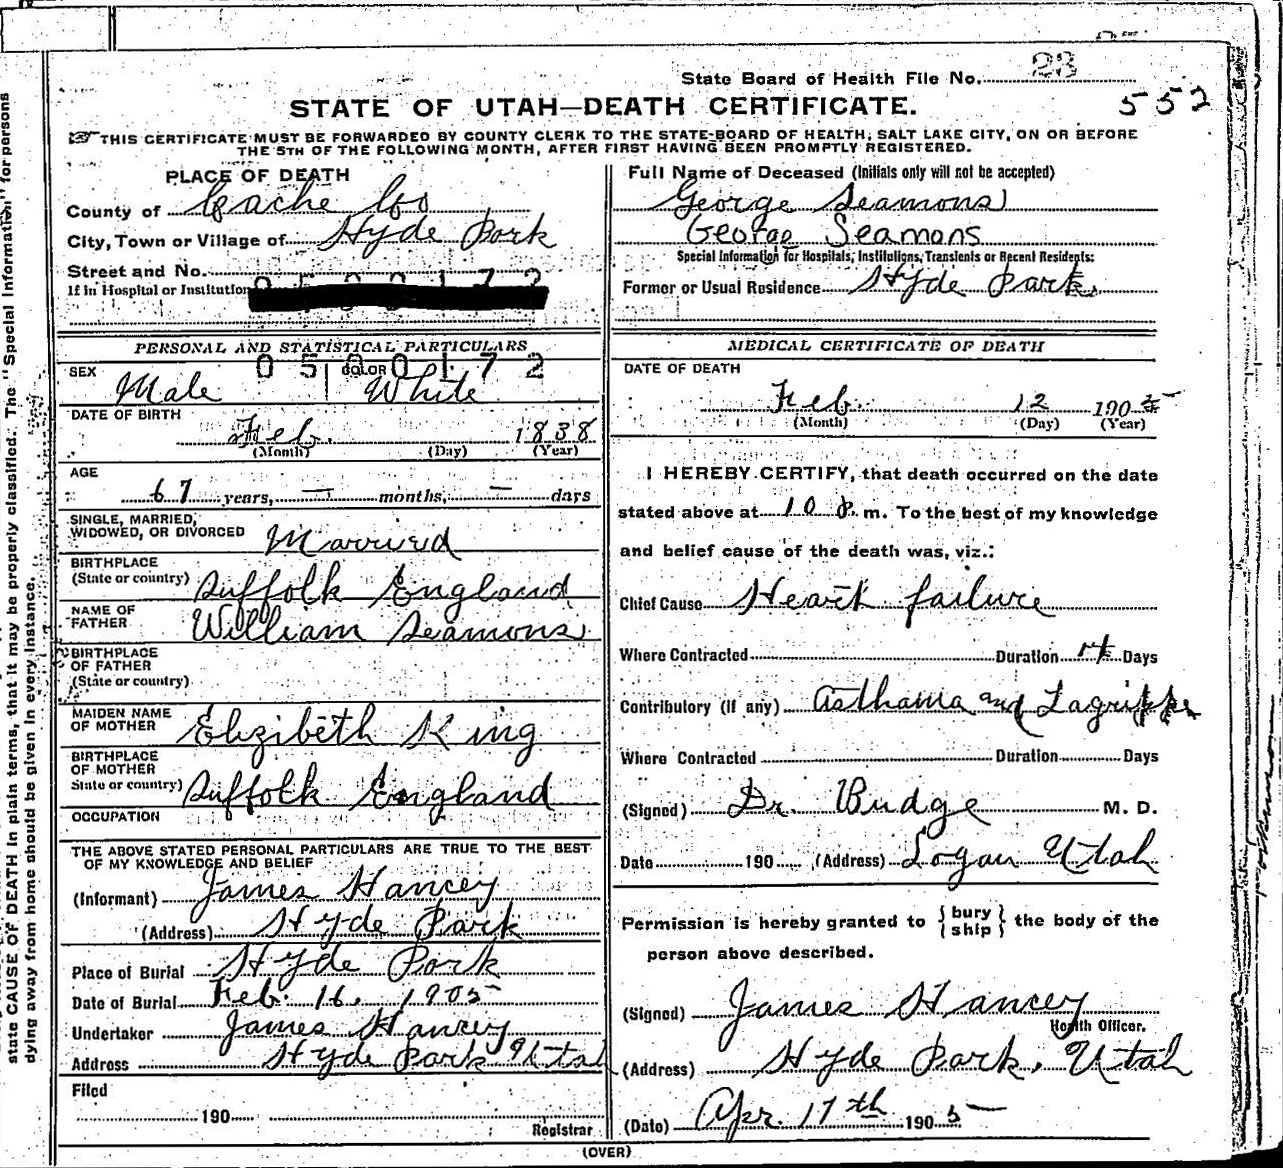 State Board of Health File No. 23
552
STATE OF UTAH—DEATH CERTIFICATE.
THIS CERTIFICATE MUST BE FORWARDED BY COUNTY CLERK TO THE STATE BOARD OF HEALTH, SALT LAKE CITY, ON OR BEFORE
THE 5TH OF THE FOLLOWING MONTH, AFTER FIRST HAVING BEEN PROMPTLY REGISTERED.
PLACE OF DEATH
County of Cache Co
City, Town or Village of Hyde Park
Street and No.
If in Hospital or Institution
PERSONAL AND STATISTICAL PARTICULARS
0500172
SEX Male
COLOR White
DATE OF BIRTH
Feb. 1838
(Month) (Day) (Year)
AGE
67 years, — months, — days
SINGLE, MARRIED,
WIDOWED, OR DIVORCED Married
BIRTHPLACE
(State or country) Suffolk England
NAME OF
FATHER William Seamons
BIRTHPLACE
OF FATHER
(State or country)
MAIDEN NAME
OF MOTHER Elizibeth King
BIRTHPLACE
OF MOTHER
State or country) Suffolk England
OCCUPATION
THE ABOVE STATED PERSONAL PARTICULARS ARE TRUE TO THE BEST
OF MY KNOWLEDGE AND BELIEF
(Informant) James Hancey
(Address) Hyde Park
Place of Burial Hyde Park
Date of Burial Feb. 16, 1905
Undertaker James Hancey
Address Hyde Park Utah
Filed
190
Registrar
Full Name of Deceased (Initials only will not be accepted)
George Seamons
George Seamons
Special Information for Hospitals, Institutions, Transients or Recent Residents:
Former or Usual Residence Hyde Park.
MEDICAL CERTIFICATE OF DEATH
DATE OF DEATH
Feb. 12 1905
(Month) (Day) (Year)
I HEREBY CERTIFY, that death occurred on the date
stated above at 10 P. m. To the best of my knowledge
and belief cause of the death was, viz.:
Chief Cause Heart failure
Where Contracted Duration Days
Contributory (if any) Asthama and Lagrippe
Where Contracted Duration Days
(Signed) Dr. Budge M. D.
Date 190 (Address) Logan Utah
Permission is hereby granted to { bury ship } the body of the
person above described.
(Signed) James Hancey
Health Officer.
(Address) Hyde Park, Utah
(Date) Apr. 17th 1905
(OVER)
state CAUSE OF DEATH in plain terms, that it may be properly classified. The "Special Information" for persons
dying away from home should be given in every instance.